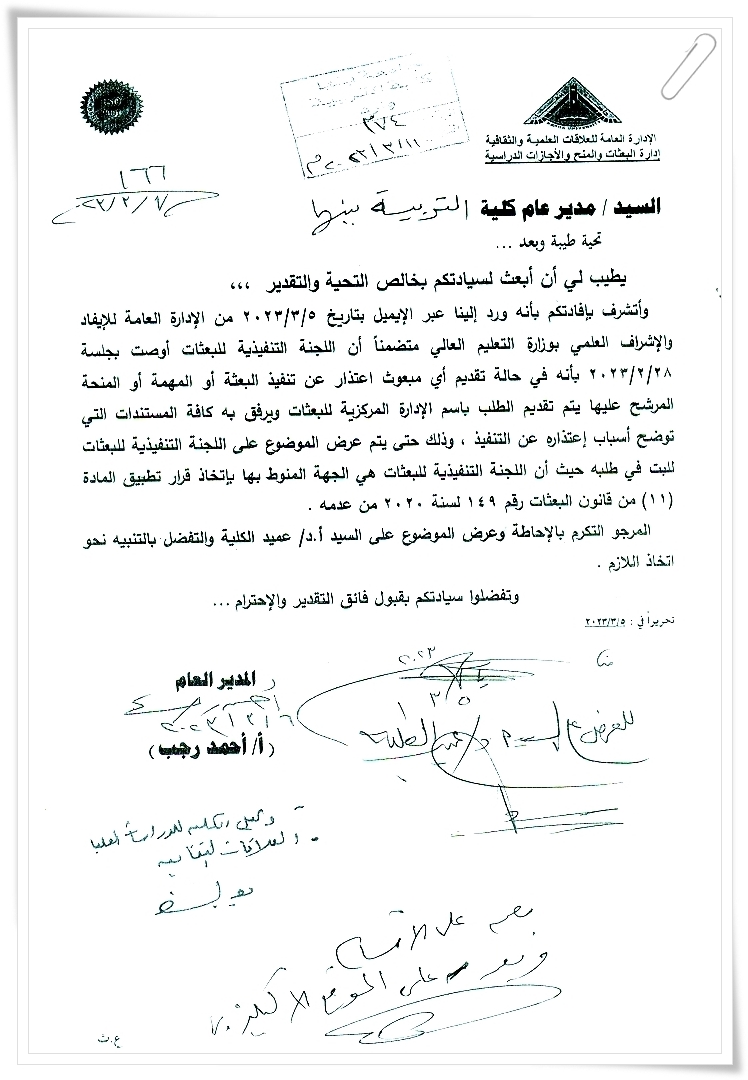 الإدارة العامة للعلاقات العلمية والثقافية
إدارة البعثات والمنح والأجازات الدراسية
٣٧٤
٢٠٢٣/٣/١١ م
١٦٦
٢٠٢٣/٣/٧
السيد / مدير عام كلية التربية ببنها
تحية طيبة وبعد ...
يطيب لي أن أبعث لسيادتكم بخالص التحية والتقدير ،،،
وأتشرف بإفادتكم بأنه ورد إلينا عبر الإيميل بتاريخ ٢٠٢٣/٣/٥ من الإدارة العامة للإيفاد
والإشراف العلمي بوزارة التعليم العالي متضمناً أن اللجنة التنفيذية للبعثات أوصت بجلسة
٢٠٢٣/٢/٢٨ بأنه في حالة تقديم أي مبعوث اعتذار عن تنفيذ البعثة أو المهمة أو المنحة
المرشح عليها يتم تقديم الطلب باسم الإدارة المركزية للبعثات ويرفق به كافة المستندات التي
توضح أسباب إعتذاره عن التنفيذ ، وذلك حتى يتم عرض الموضوع على اللجنة التنفيذية للبعثات
للبت في طلبه حيث أن اللجنة التنفيذية للبعثات هي الجهة المنوط بها بإتخاذ قرار تطبيق المادة
(١١) من قانون البعثات رقم ١٤٩ لسنة ٢٠٢٠ من عدمه .
المرجو التكرم بالإحاطة وعرض الموضوع على السيد أ.د/ عميد الكلية والتفضل بالتنبيه نحو
اتخاذ اللازم .
وتفضلوا سيادتكم بقبول فائق التقدير والإحترام ...
تحريراً في : ٢٠٢٣/٣/٥
المدير العام
٢٠٢٣/٣/٦
(أ/ أحمد رجب)
للعرض على السيد أ.د/ عميد الكلية
وكيل الكلية للدراسات العليا
والعلاقات الثقافية
على الأقسام
على الموقع الالكتروني
ع.ث